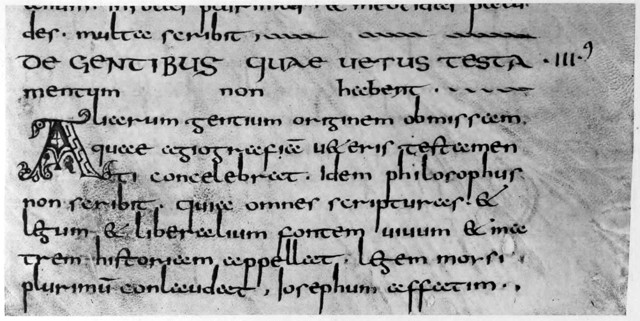 des. multa scribit
DE GENTIBUS QUAE UETUS TESTA · III·
mentum non habent.
Aliarum gentium originem obmissam.
quae agiografiā u&eris testamen
ti concelebrat. Idem philosophus
non scribit. quia omnes scripturas. &
legum & liberalium fontem uiuum & ma
trem historiam appellat. legem morsi
plurimū conlaudat, Iosephum affatim.